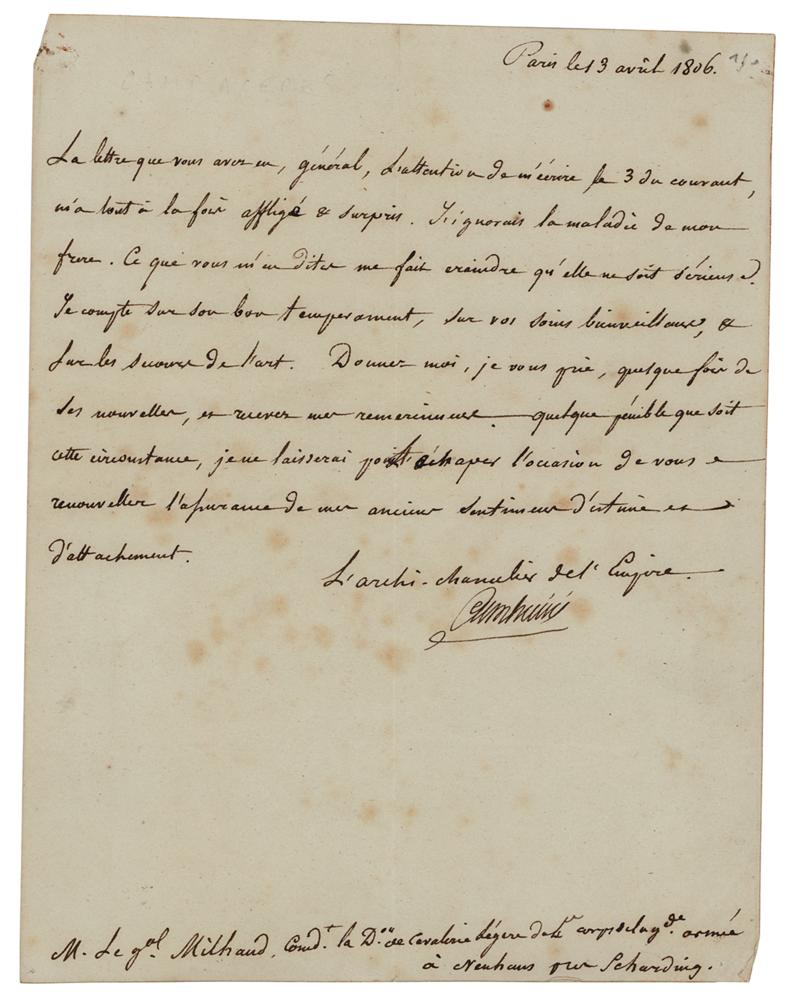 Paris le 13 avril 1806.
La lettre que vous avez eu, général, l'attention de m'écrire le 3 du courant,
m'a tout à la fois affligé & surpris. J'ignorais la maladie de mon
frere. Ce que vous m'en dites me fait craindre qu'elle ne soit sérieuse.
Je compte sur son bon temperament, sur vos soins bienveillans, &
sur les secours de l'art. Donnez moi, je vous prie, quelque fois de
ses nouvelles, et recevez mes remerciemens. quelque pénible que soit
cette circonstance, je ne laisserai point échaper l'occasion de vous
renouveller l'assurance de mes anciens sentimens d'estime et
d'attachement.
L'archi-chancelier de l'Empire.
Cambacérès
M. Le gal. Milhaud, Comdt. la Don. de Cavalerie Légere du corps de la gde. armée
à Neuhaus sur Scharding.